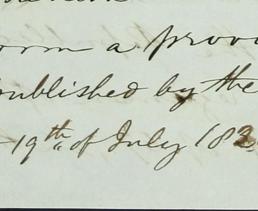 orm a provi
published by the
19th of July 183